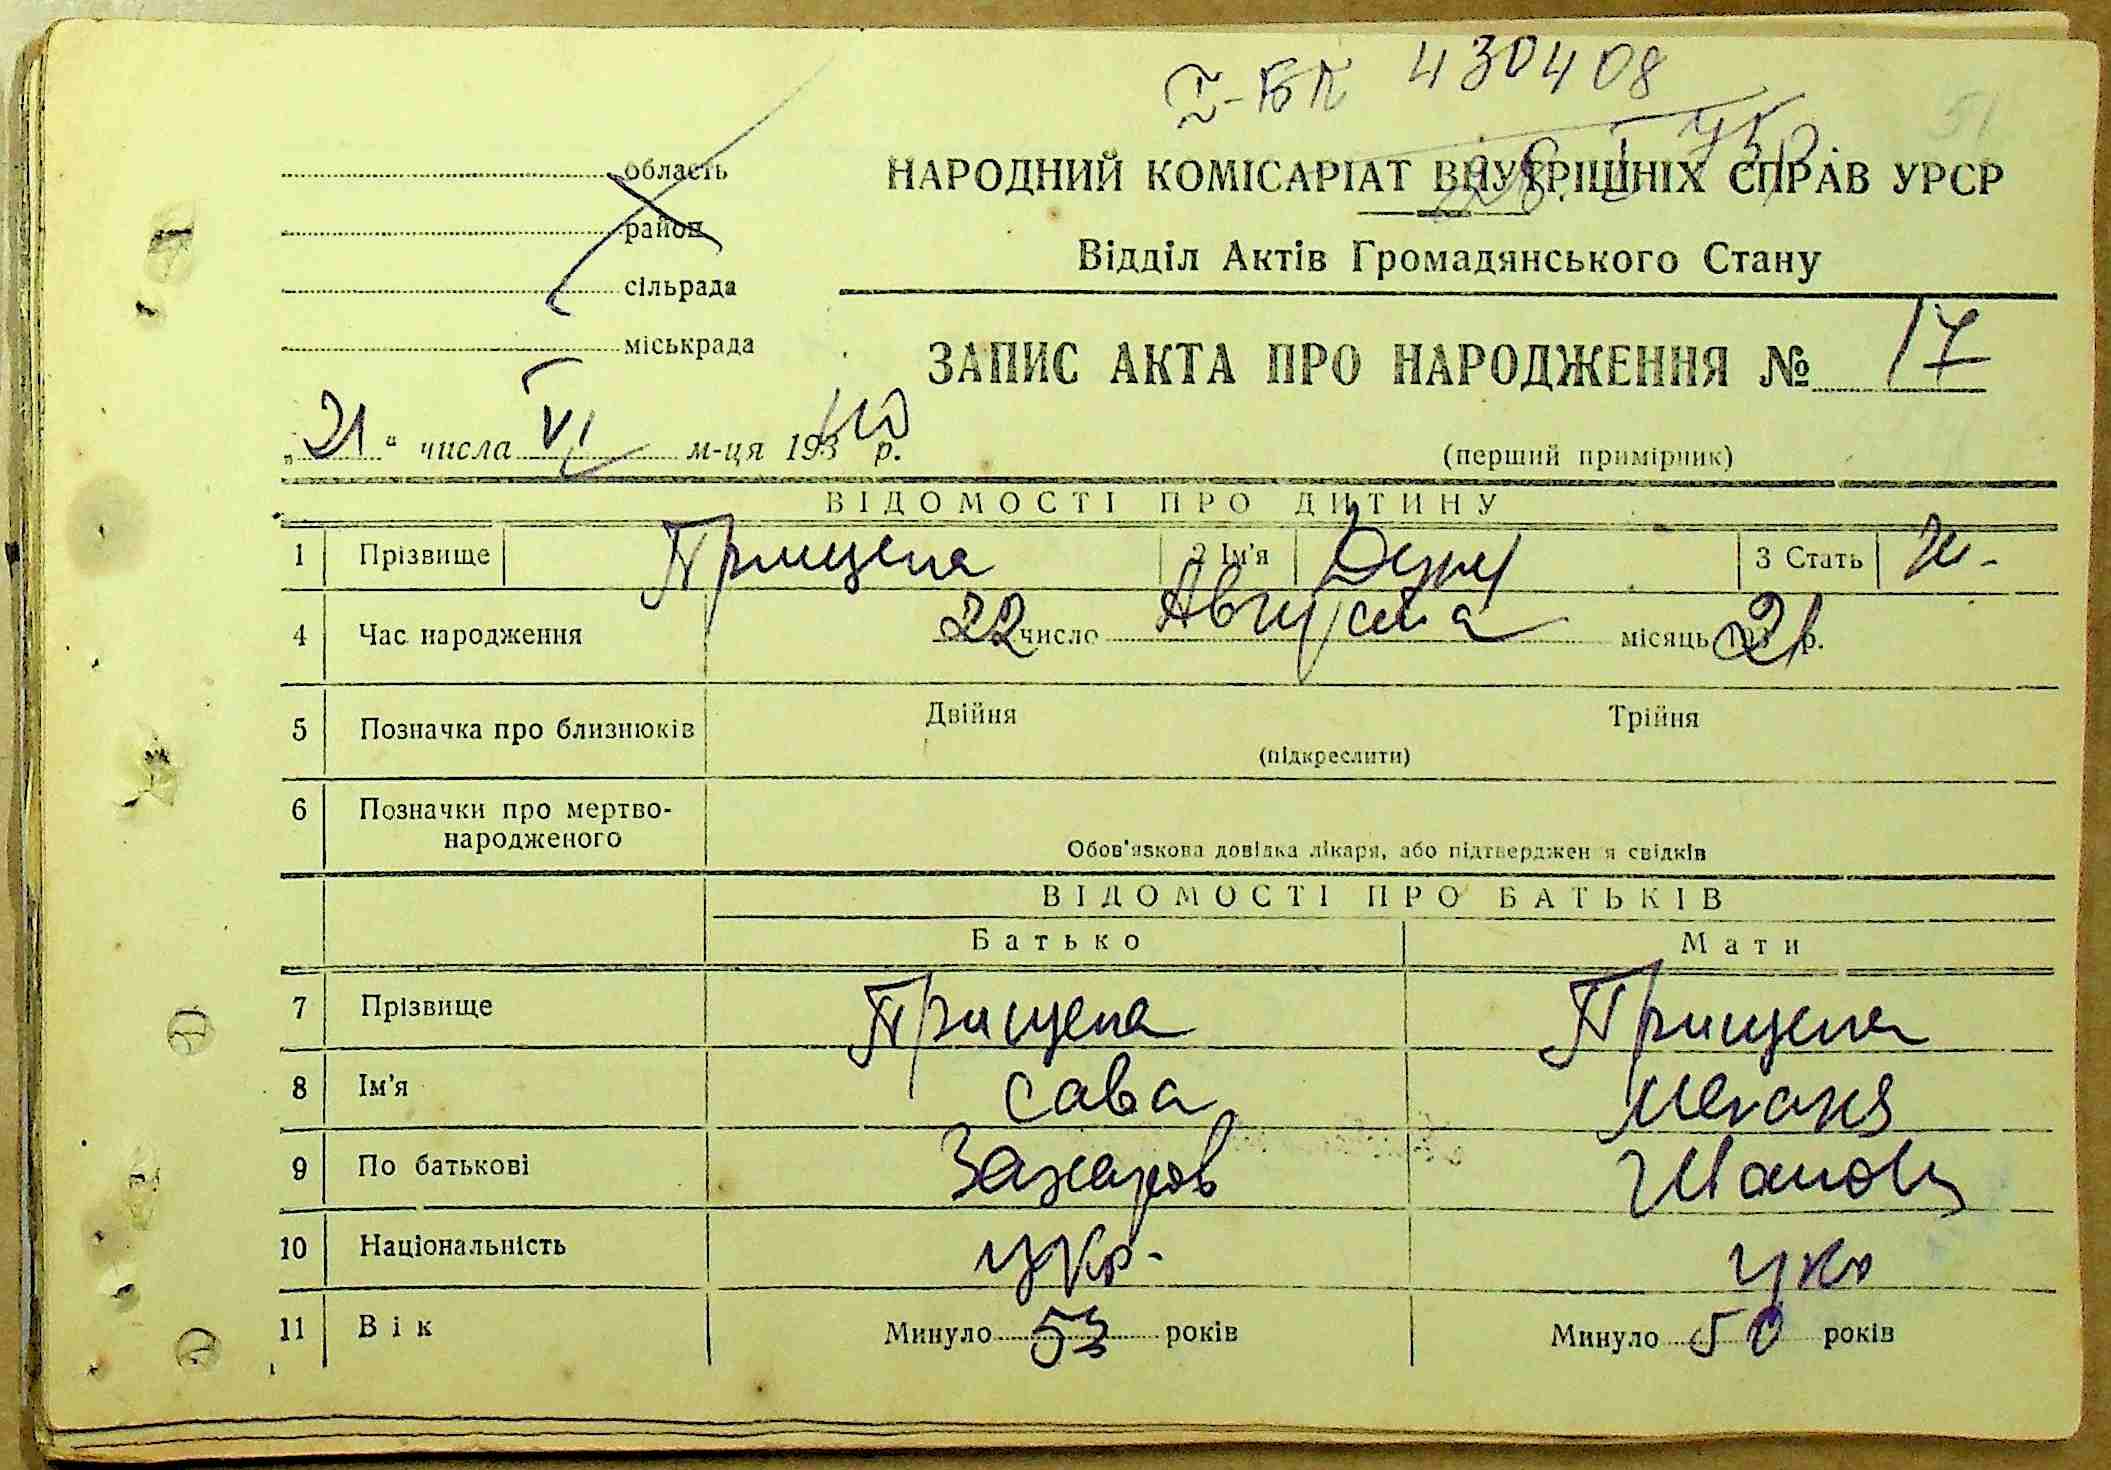 I-БП 430408
область
район
сільрада
міськрада
НАРОДНИЙ КОМІСАРІАТ ВНУТРІШНІХ СПРАВ УРСР
Відділ Актів Громадянського Стану
ЗАПИС АКТА ПРО НАРОДЖЕННЯ № 17
„21“ числа VI м-ця 1940 р.
(перший примірник)
ВІДОМОСТІ ПРО ДИТИНУ
1 Прізвище Прищепа 2 Ім'я 3 Стать ж-
4 Час народження 22 число Августа місяць 21 р.
5 Позначка про близнюків Двійня Трійня
(підкреслити)
6 Позначки про мертво-
народженого
Обов'язкова довідка лікаря, або підтвердження свідків
ВІДОМОСТІ ПРО БАТЬКІВ
Батько Мати
7 Прізвище Прищепа Прищепа
8 Ім'я Сава
9 По батькові Захаров
10 Національність укр- укр
11 Вік Минуло 53 років Минуло 50 років